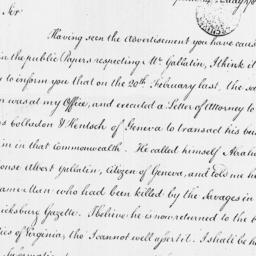 Sir
Having seen the Advertisement you have caus
in the public Papers respecting Mr. Gallatin, I think it
to inform you that on the 20th February last, the sa
on over at my Office, and executed a Letter of Attorney to
bolladon & Hentsch of Geneva to transact his bus
im in that Commonwealth. He called himself Abraha
onse Albert Gallatin, Citizen of Geneva, and told me h
ame Man who had been killed by the Savages in
icksburg Gazette. I believe he is now returned to the b
ies of Virginia, tho' I cannot well assert it. I shall be ha